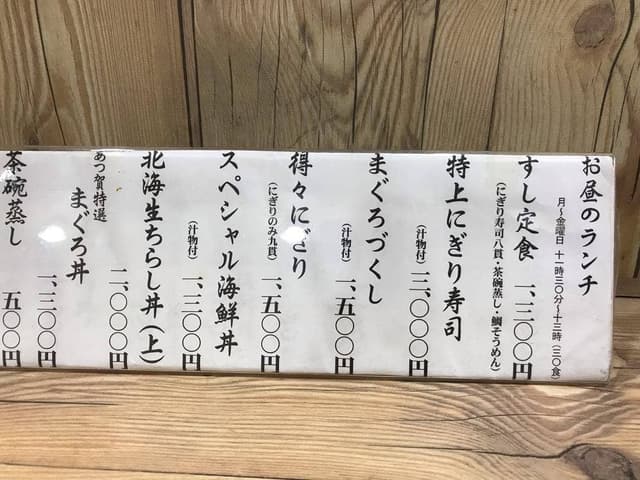 お昼のランチ
月～金曜日 十一時三〇分～十三時（三〇食）
すし定食 一、三〇〇円
（にぎり寿司八貫・茶碗蒸し・鯛そうめん）
特上にぎり寿司
（汁物付） 三、〇〇〇円
まぐろづくし
（汁物付） 一、五〇〇円
得々にぎり
（にぎりのみ九貫） 一、五〇〇円
スペシャル海鮮丼
（汁物付） 一、三〇〇円
北海生ちらし丼（上）
二、〇〇〇円
あつ賀特選
まぐろ丼
一、三〇〇円
茶碗蒸し 五〇〇円